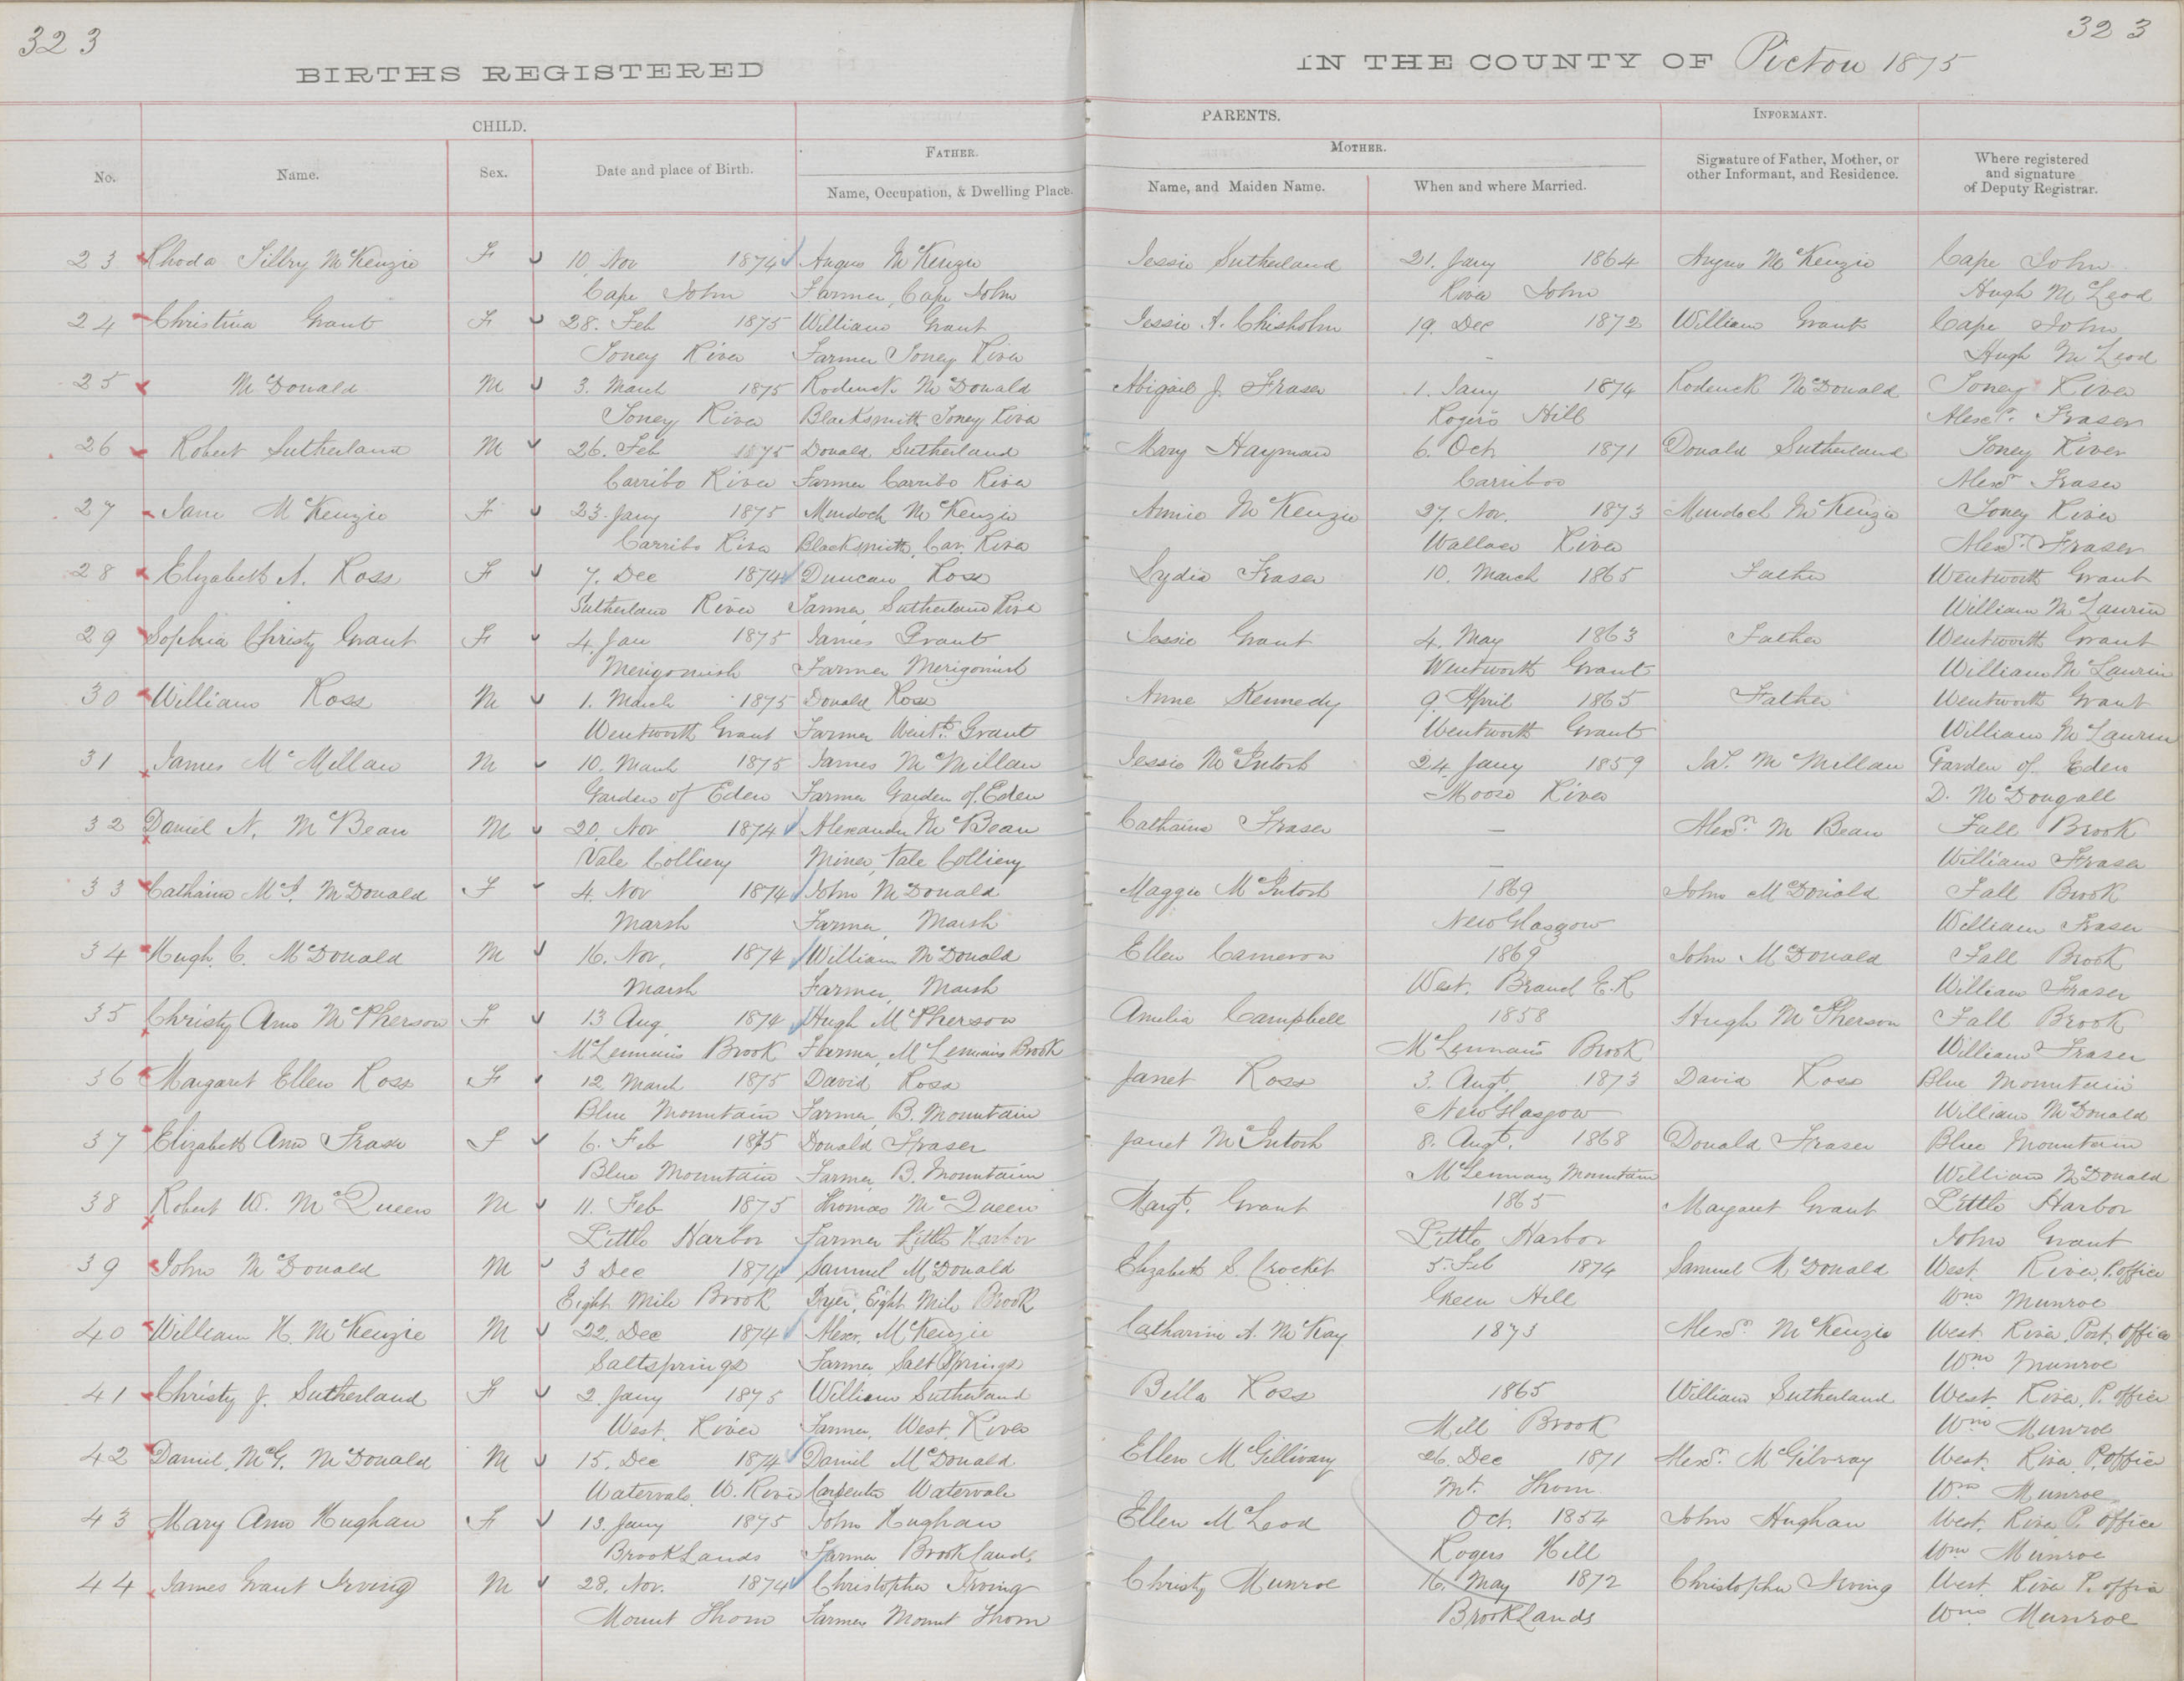 323
323
BIRTHS REGISTERED
IN THE COUNTY OF Pictou 1875
CHILD.
PARENTS.
INFORMANT.
No.
Name.
Sex.
Date and place of Birth.
FATHER.
Name, Occupation, & Dwelling Place.
MOTHER.
Name, and Maiden Name.
When and where Married.
Signature of Father, Mother, or other Informant, and Residence.
Where registered and signature of Deputy Registrar.
23 Rhoda McKenzie F 10 Nov 1874 Angus McKenzie Jessie Sutherland 21. Jany 1864 Angus McKenzie Cape John
Cape John Farmer, Cape John River John Hugh McLeod
24 Christina Grant F 28. Feb 1875 William Grant Jessie A. Chisholm 19. Dec 1872 William Grant Cape John
Toney River Farmer Toney River - Hugh McLeod
25 McDonald M 3. March 1875 Roderick McDonald Abigail J. Fraser 1. Jany 1874 Roderick McDonald Toney River
Toney River Blacksmith Toney River Rogers Hill Alexr. Fraser
26 Robert Sutherland M 26. Feb 1875 Donald Sutherland Mary Hayman 6. Oct 1871 Donald Sutherland Toney River
Carribo River Farmer Carribo River Carriboo Alexr Fraser
27 Jane McKenzie F 23. Jany 1875 Murdoch McKenzie Annie McKenzie 27. Nov. 1873 Murdoch McKenzie Toney River
Carribo River Blacksmith, Car. River Wallace River Alexr. Fraser
28 Elizabeth A. Ross F 7. Dec 1874 Duncan Ross Lydia Fraser 10. March 1865 Father Wentworth Grant
Sutherland River Farmer, Sutherland River William McLaurin
29 Sophia Christy Grant F 4. Jan 1875 James Grant Jessie Grant 4. May 1863 Father Wentworth Grant
Merigomish Farmer Merigomish Wentworth Grant William McLaurin
30 William Ross M 1. March 1875 Donald Ross Anne Kennedy 9. April 1865 Father Wentworth Grant
Wentworth Grant Farmer Wentth. Grant Wentworth Grant William McLaurin
31 James McMillan M 10. March 1875 James McMillan Jessie McIntosh 24. Jany 1859 Jas. McMillan Garden of Eden
Garden of Eden Farmer Garden of Eden Moose River D. McDougall
32 Daniel N. McBean M 20. Nov 1874 Alexander McBean Catharine Fraser — Alexr. McBean Fall Brook
Vale Colliery Miner, Vale Colliery — William Fraser
33 Catharine McI. McDonald F 4. Nov 1874 John McDonald Maggie McIntosh 1869 John McDonald Fall Brook
Marsh Farmer, Marsh New Glasgow William Fraser
34 Hugh C. McDonald M 16. Nov, 1874 William McDonald Ellen Cameron 1869 John McDonald Fall Brook
Marsh Farmer, Marsh West. Branch E.R William Fraser
35 Christy Ann McPherson F 13 Aug 1874 Hugh McPherson Amelia Campbell 1858 Hugh McPherson Fall Brook
McLennan's Brook Farmer, McLennans Brook McLennan's Brook William Fraser
36 Margaret Ellen Ross F 12. March 1875 David Ross Janet Ross 3. Augt. 1873 David Ross Blue Mountain
Blue Mountain Farmer, B. Mountain New Glasgow William McDonald
37 Elizabeth Ann Fraser F 6. Feb 1875 Donald Fraser Janet McIntosh 8. Augt. 1868 Donald Fraser Blue Mountain
Blue Mountain Farmer, B. Mountain McLennan Mountain William McDonald
38 Robert W. McQueen M 11. Feb 1875 Thomas McQueen Margt. Grant 1865 Margaret Grant Little Harbor
Little Harbor Farmer Little Harbor Little Harbor John Grant
39 John McDonald M 3 Dec 1874 Samuel McDonald Elizabeth S. Crocket 5. Feb 1874 Samuel McDonald West River, P. office
Eight Mile Brook Dyer, Eight Mile Brook Green Hill Wm Munroe
40 William H. McKenzie M 22. Dec 1874 Alexr. McKenzie Catharine A. McKay 1873 Alexr. McKenzie West River, Post. office
Saltsprings Farmer, Salt Springs Wm Munroe
41 Christy J. Sutherland F 2. Jany 1875 William Sutherland Bella Ross 1865 William Sutherland West River, P. office
West. River Farmer, West. River Mill Brook Wm Munroe
42 Daniel McG. McDonald M 15. Dec 1874 Daniel McDonald Ellen McGillivary 26. Dec 1871 Alexr. McGilvray West. River P. office
Watervale W. River Carpenter Watervale Mt. Thom Wm Munroe
43 Mary Ann Hughan F 13. Jany 1875 John Hughan Ellen McLeod Oct. 1854 John Hughan West. River P. office
Brooklands Farmer Brooklands Rogers Hill Wm Munroe
44 James Grant Irving M 28. Nov. 1874 Christopher Irving Christy Munroe 16. May 1872 Christopher Irving West River P. office
Mount Thom Farmer Mount Thom Brooklands Wm Munroe